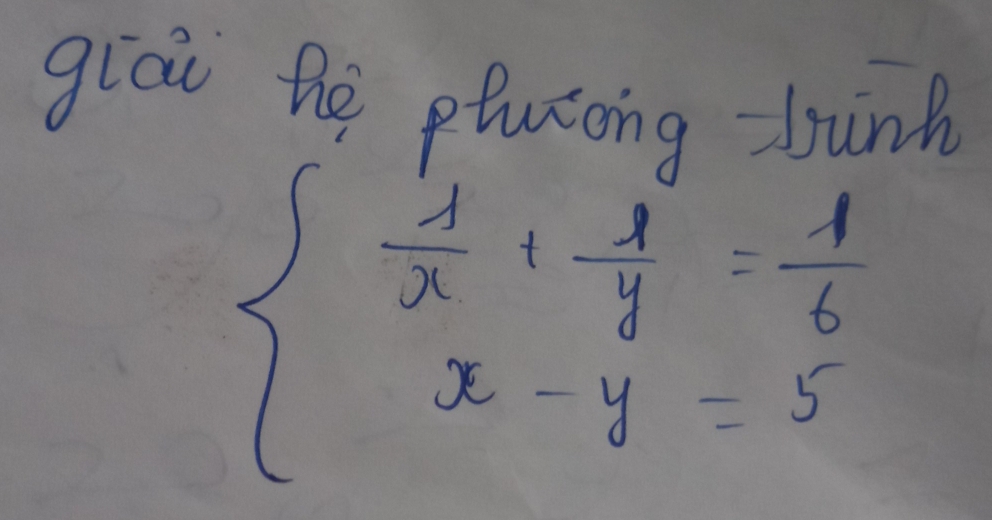 giải hệ phương trình
1/x + 1/y = 1/6
x - y = 5